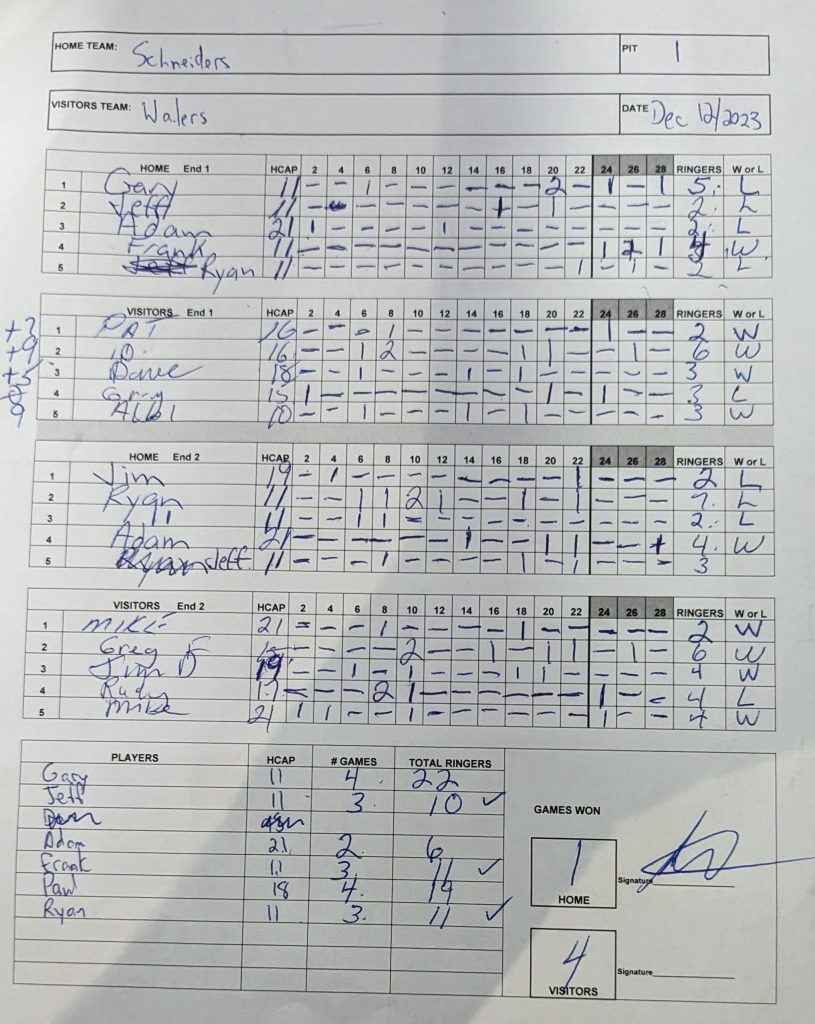 HOME TEAM: Schneiders PIT 1
VISITORS TEAM: Walers DATE Dec 12/2023
HOME End 1 HCAP 2 4 6 8 10 12 14 16 18 20 22 24 26 28 RINGERS W or L
1 Gary 11 – – 1 – – – – – – 2 – 1 – 1 5 L
2 Jeff 11 – – – – – – – 1 – 1 – – – – 2 L
3 Adam 21 1 – – – – 1 – – – – – – – – 2 L
4 Frank 11 – – – – – – – – – – – 1 2 1 4 W
5 Ryan 11 – – – – – – – – – – 1 – 1 – 2 L
VISITORS End 1 HCAP 2 4 6 8 10 12 14 16 18 20 22 24 26 28 RINGERS W or L
+3 1 PAT 16 – – – 1 – – – – – – – 1 – – 2 W
+9 2 16 – – 1 2 – – – – 1 1 – – 1 – 6 W
+5 3 Dave 18 – – 1 – – – 1 – 1 – – – – – 3 W
4 15 1 – – – – – – – – 1 – 1 – – 3 L
9 5 10 – – 1 – – – 1 – 1 – – – – – 3 W
HOME End 2 HCAP 2 4 6 8 10 12 14 16 18 20 22 24 26 28 RINGERS W or L
1 Jim 19 – 1 – – – – – – – – 1 – – – 2 L
2 Ryan 11 – – 1 1 2 1 – – 1 – 1 – – – 7 L
3 11 – – 1 1 – – – – – – – – – – 2 L
4 Adam 21 – – – – – – 1 – – 1 1 – – 1 4 W
5 Jeff 11 – – – 1 – – – – – 1 1 – – – 3
VISITORS End 2 HCAP 2 4 6 8 10 12 14 16 18 20 22 24 26 28 RINGERS W or L
1 MIKE 21 – – – 1 – – – – 1 – – – – – 2 W
2 Greg F – – – – 2 – – 1 – 1 1 – 1 – 6 W
3 Jim D 19 – – 1 – 1 – – – 1 1 – – – – 4 W
4 Rudy – – – 2 1 – – – – – – 1 – – 4 L
5 Mike 21 1 1 – – 1 – – – – – – 1 – – 4 W
PLAYERS HCAP # GAMES TOTAL RINGERS
Gary 11 4 22
Jeff 11 3 10 ✓
Adam 21 2 6
Frank 11 3 11 ✓
Paul 18 4 19
Ryan 11 3 11 ✓
GAMES WON
1
HOME
Signature
4
VISITORS
Signature